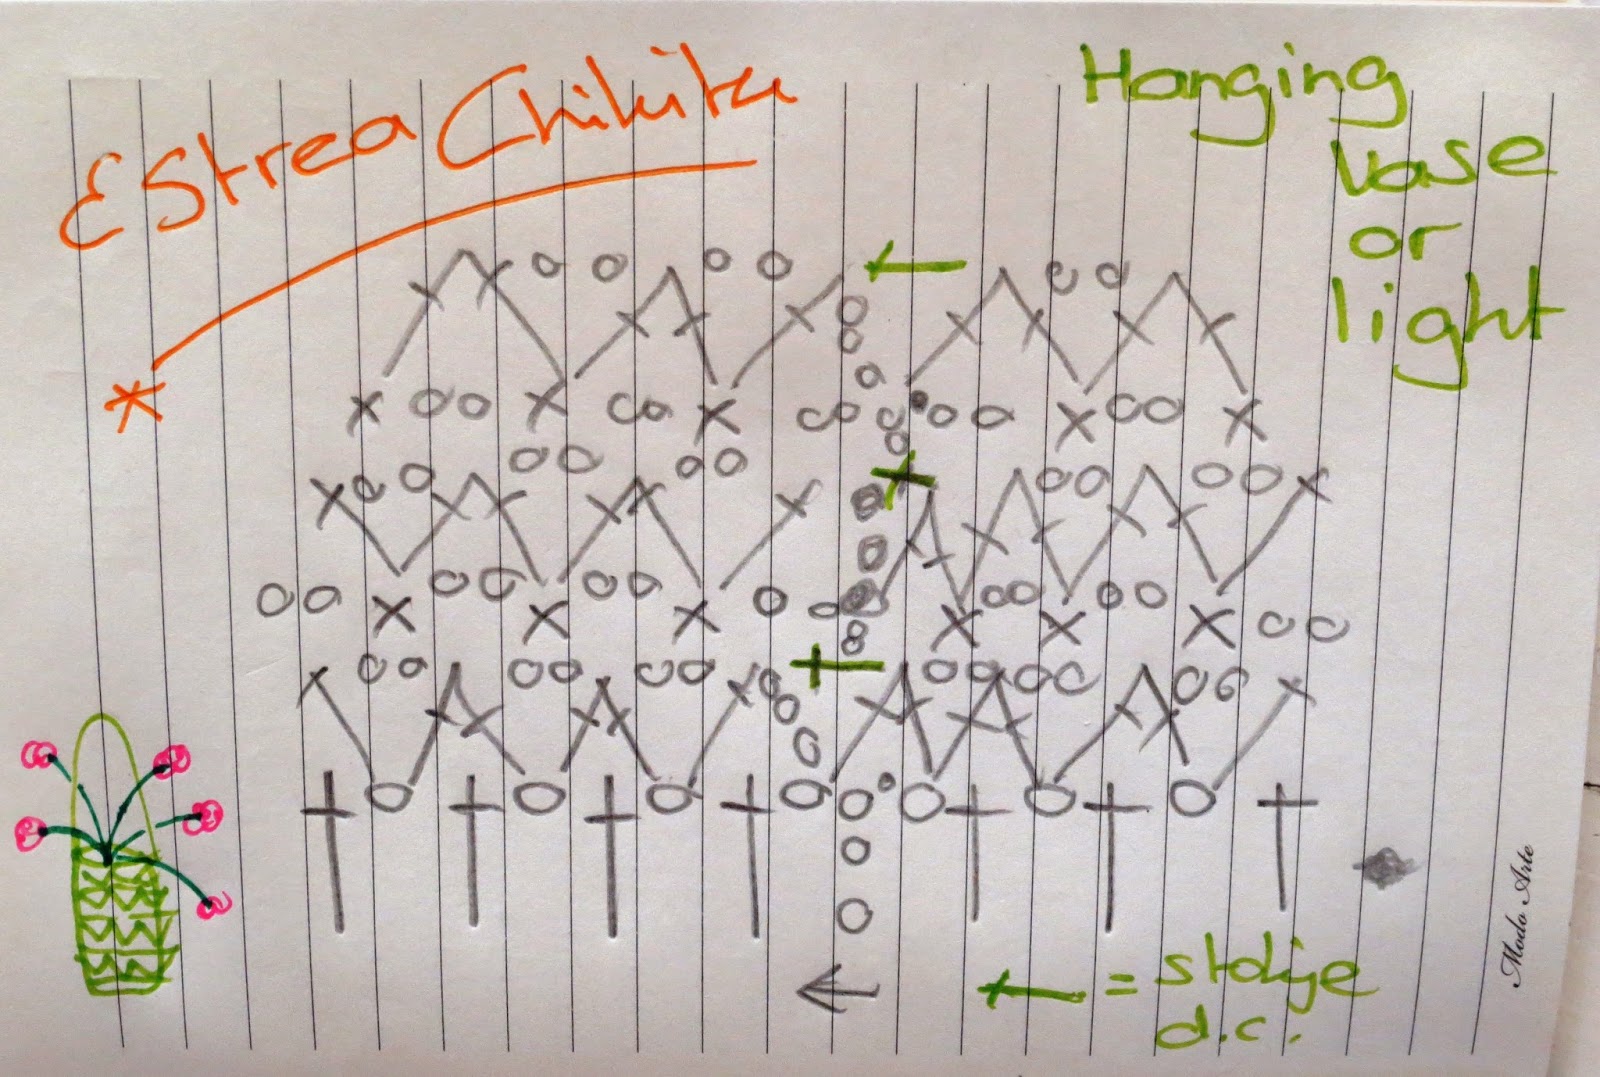 EStrea Chikita
Hanging
vase
or
light
= stokje
d.c.
Modo Arte